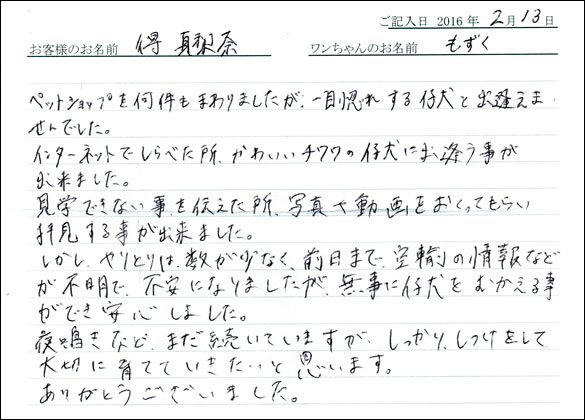 ご記入日 2016 年 2 月 13 日
お客様のお名前 得 真梨奈 ワンちゃんのお名前 もずく
ペットショップを何件もまわりましたが、一目惚れする仔犬と出逢えま
せんでした。
インターネットでしらべた所、かわいいチワワの仔犬に出逢う事が
出来ました。
見学できない事を伝えた所、写真や動画をおくってもらい
拝見する事が出来ました。
しかし、やりとりは、数が少なく、前日まで、空輸の情報など
が不明で、不安になりましたが、無事に仔犬をむかえる事
ができ安心しました。
夜鳴きなど、まだ続いていますが、しっかり、しつけをして
大切に育てていきたいと思います。
ありがとうございました。